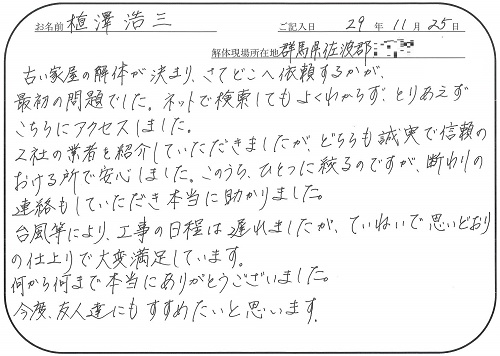 お名前 植澤浩三 ご記入日 29年11月25日
解体現場所在地 群馬県佐波郡
古い家屋の解体が決まり、さてどこへ依頼するかが、
最初の問題でした。ネットで検索してもよくわからず、とりあえず
こちらにアクセスしました。
2社の業者を紹介していただきましたが、どちらも誠実で信頼の
おける所で安心しました。このうち、ひとつに絞るのですが、断わりの
連絡もしていただき本当に助かりました。
台風等により、工事の日程は遅れましたが、ていねいで思いどおり
の仕上りで大変満足しています。
何から何まで本当にありがとうございました。
今度、友人達にもすすめたいと思います。